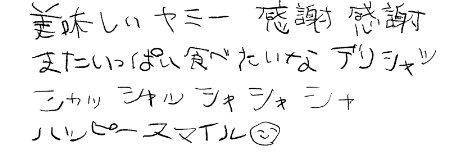 美味しいヤミー 感謝 感謝
またいっぱい食べたいな デリシャッ
シャッ シャル シャ シャ シャ
ハッピースマイル☺